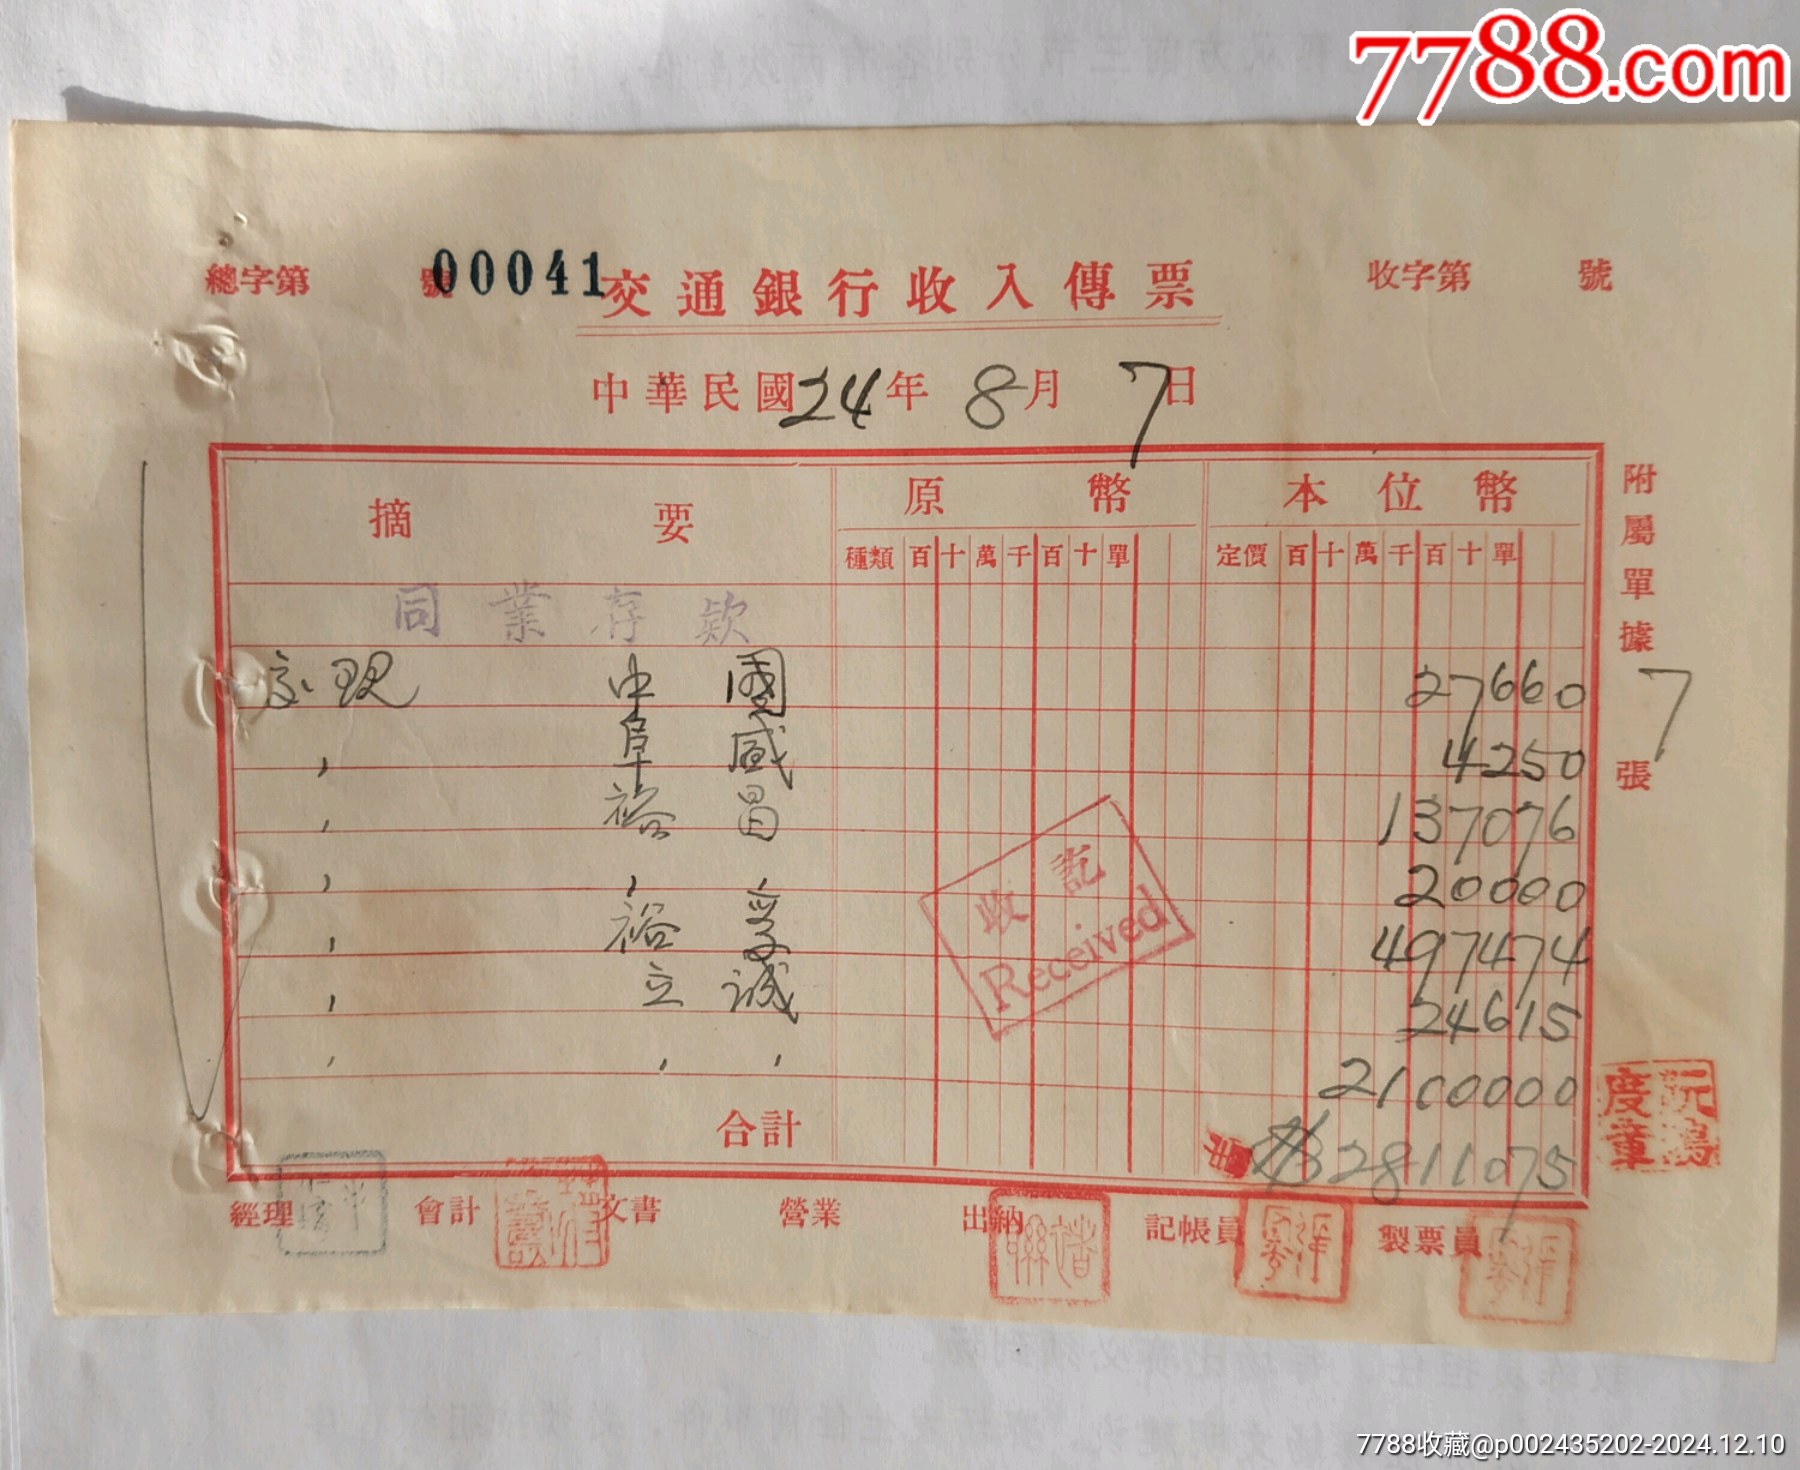 7788.com
總字第 號 00041 交通銀行收入傳票 收字第 號
中華民國24年 8月 7日
摘 要 原 幣 本位幣
種類 百 十 萬 千 百 十 單 定價 百 十 萬 千 百 十 單
附屬單據 7 張
同業存款
中國 27660
阜盛 4250
裕昌 137076
20000
裕 497474
立誠 24615
2100000
合計 2811075
收訖
Received
經理 會計 文書 營業 出納 記帳員 製票員
7788收藏@p002435202-2024.12.10